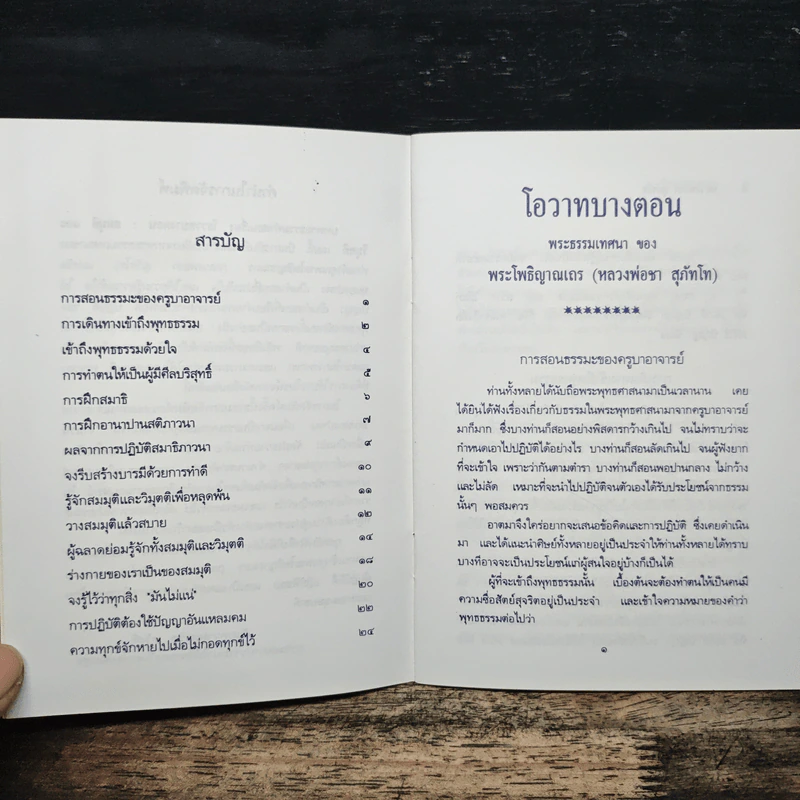 สารบัญ
การสอนธรรมะของครูบาอาจารย์ ๑
การเดินทางเข้าถึงพุทธธรรม ๒
เข้าถึงพุทธธรรมด้วยใจ ๔
การทำตนให้เป็นผู้มีศีลบริสุทธิ์ ๕
การฝึกสมาธิ ๖
การฝึกอานาปานสติภาวนา ๗
ผลจากการปฏิบัติสมาธิภาวนา ๙
จงรีบสร้างบารมีด้วยการทำดี ๑๐
รู้จักสมมุติและวิมุตติเพื่อหลุดพ้น ๑๑
วางสมมุติแล้วสบาย ๑๒
ผู้ฉลาดย่อมรู้จักทั้งสมมุติและวิมุตติ ๑๔
ร่างกายของเราเป็นของสมมุติ ๑๘
จงรู้ไว้ว่าทุกสิ่ง "มันไม่แน่" ๒๐
การปฏิบัติต้องใช้ปัญญาอันแหลมคม ๒๒
ความทุกข์จักหายไปเมื่อไม่กอดทุกข์ไว้ ๒๔
โอวาทบางตอน
พระธรรมเทศนา ของ
พระโพธิญาณเถร (หลวงพ่อชา สุภัทโท)
********
การสอนธรรมะของครูบาอาจารย์
ท่านทั้งหลายได้นับถือพระพุทธศาสนามาเป็นเวลานาน เคย
ได้ยินได้ฟังเรื่องเกี่ยวกับธรรมในพระพุทธศาสนามาจากครูบาอาจารย์
มาก็มาก ซึ่งบางท่านก็สอนอย่างพิสดารกว้างเกินไป จนไม่ทราบว่าจะ
กำหนดเอาไปปฏิบัติได้อย่างไร บางท่านก็สอนลัดเกินไป จนผู้ฟังยาก
ที่จะเข้าใจ เพราะว่ากันตามตำรา บางท่านก็สอนพอปานกลาง ไม่กว้าง
และไม่ลัด เหมาะที่จะนำไปปฏิบัติจนตัวเองได้รับประโยชน์จากธรรม
นั้นๆ พอสมควร
อาตมาจึงใคร่อยากจะเสนอข้อคิดและการปฏิบัติ ซึ่งเคยดำเนิน
มา และได้แนะนำศิษย์ทั้งหลายอยู่เป็นประจำให้ท่านทั้งหลายได้ทราบ
บางทีอาจจะเป็นประโยชน์แก่ผู้สนใจอยู่บ้างก็เป็นได้
ผู้ที่จะเข้าถึงพุทธธรรมนั้น เบื้องต้นจะต้องทำตนให้เป็นคนมี
ความซื่อสัตย์สุจริตอยู่เป็นประจำ และเข้าใจความหมายของคำว่า
พุทธธรรมต่อไปว่า
๑